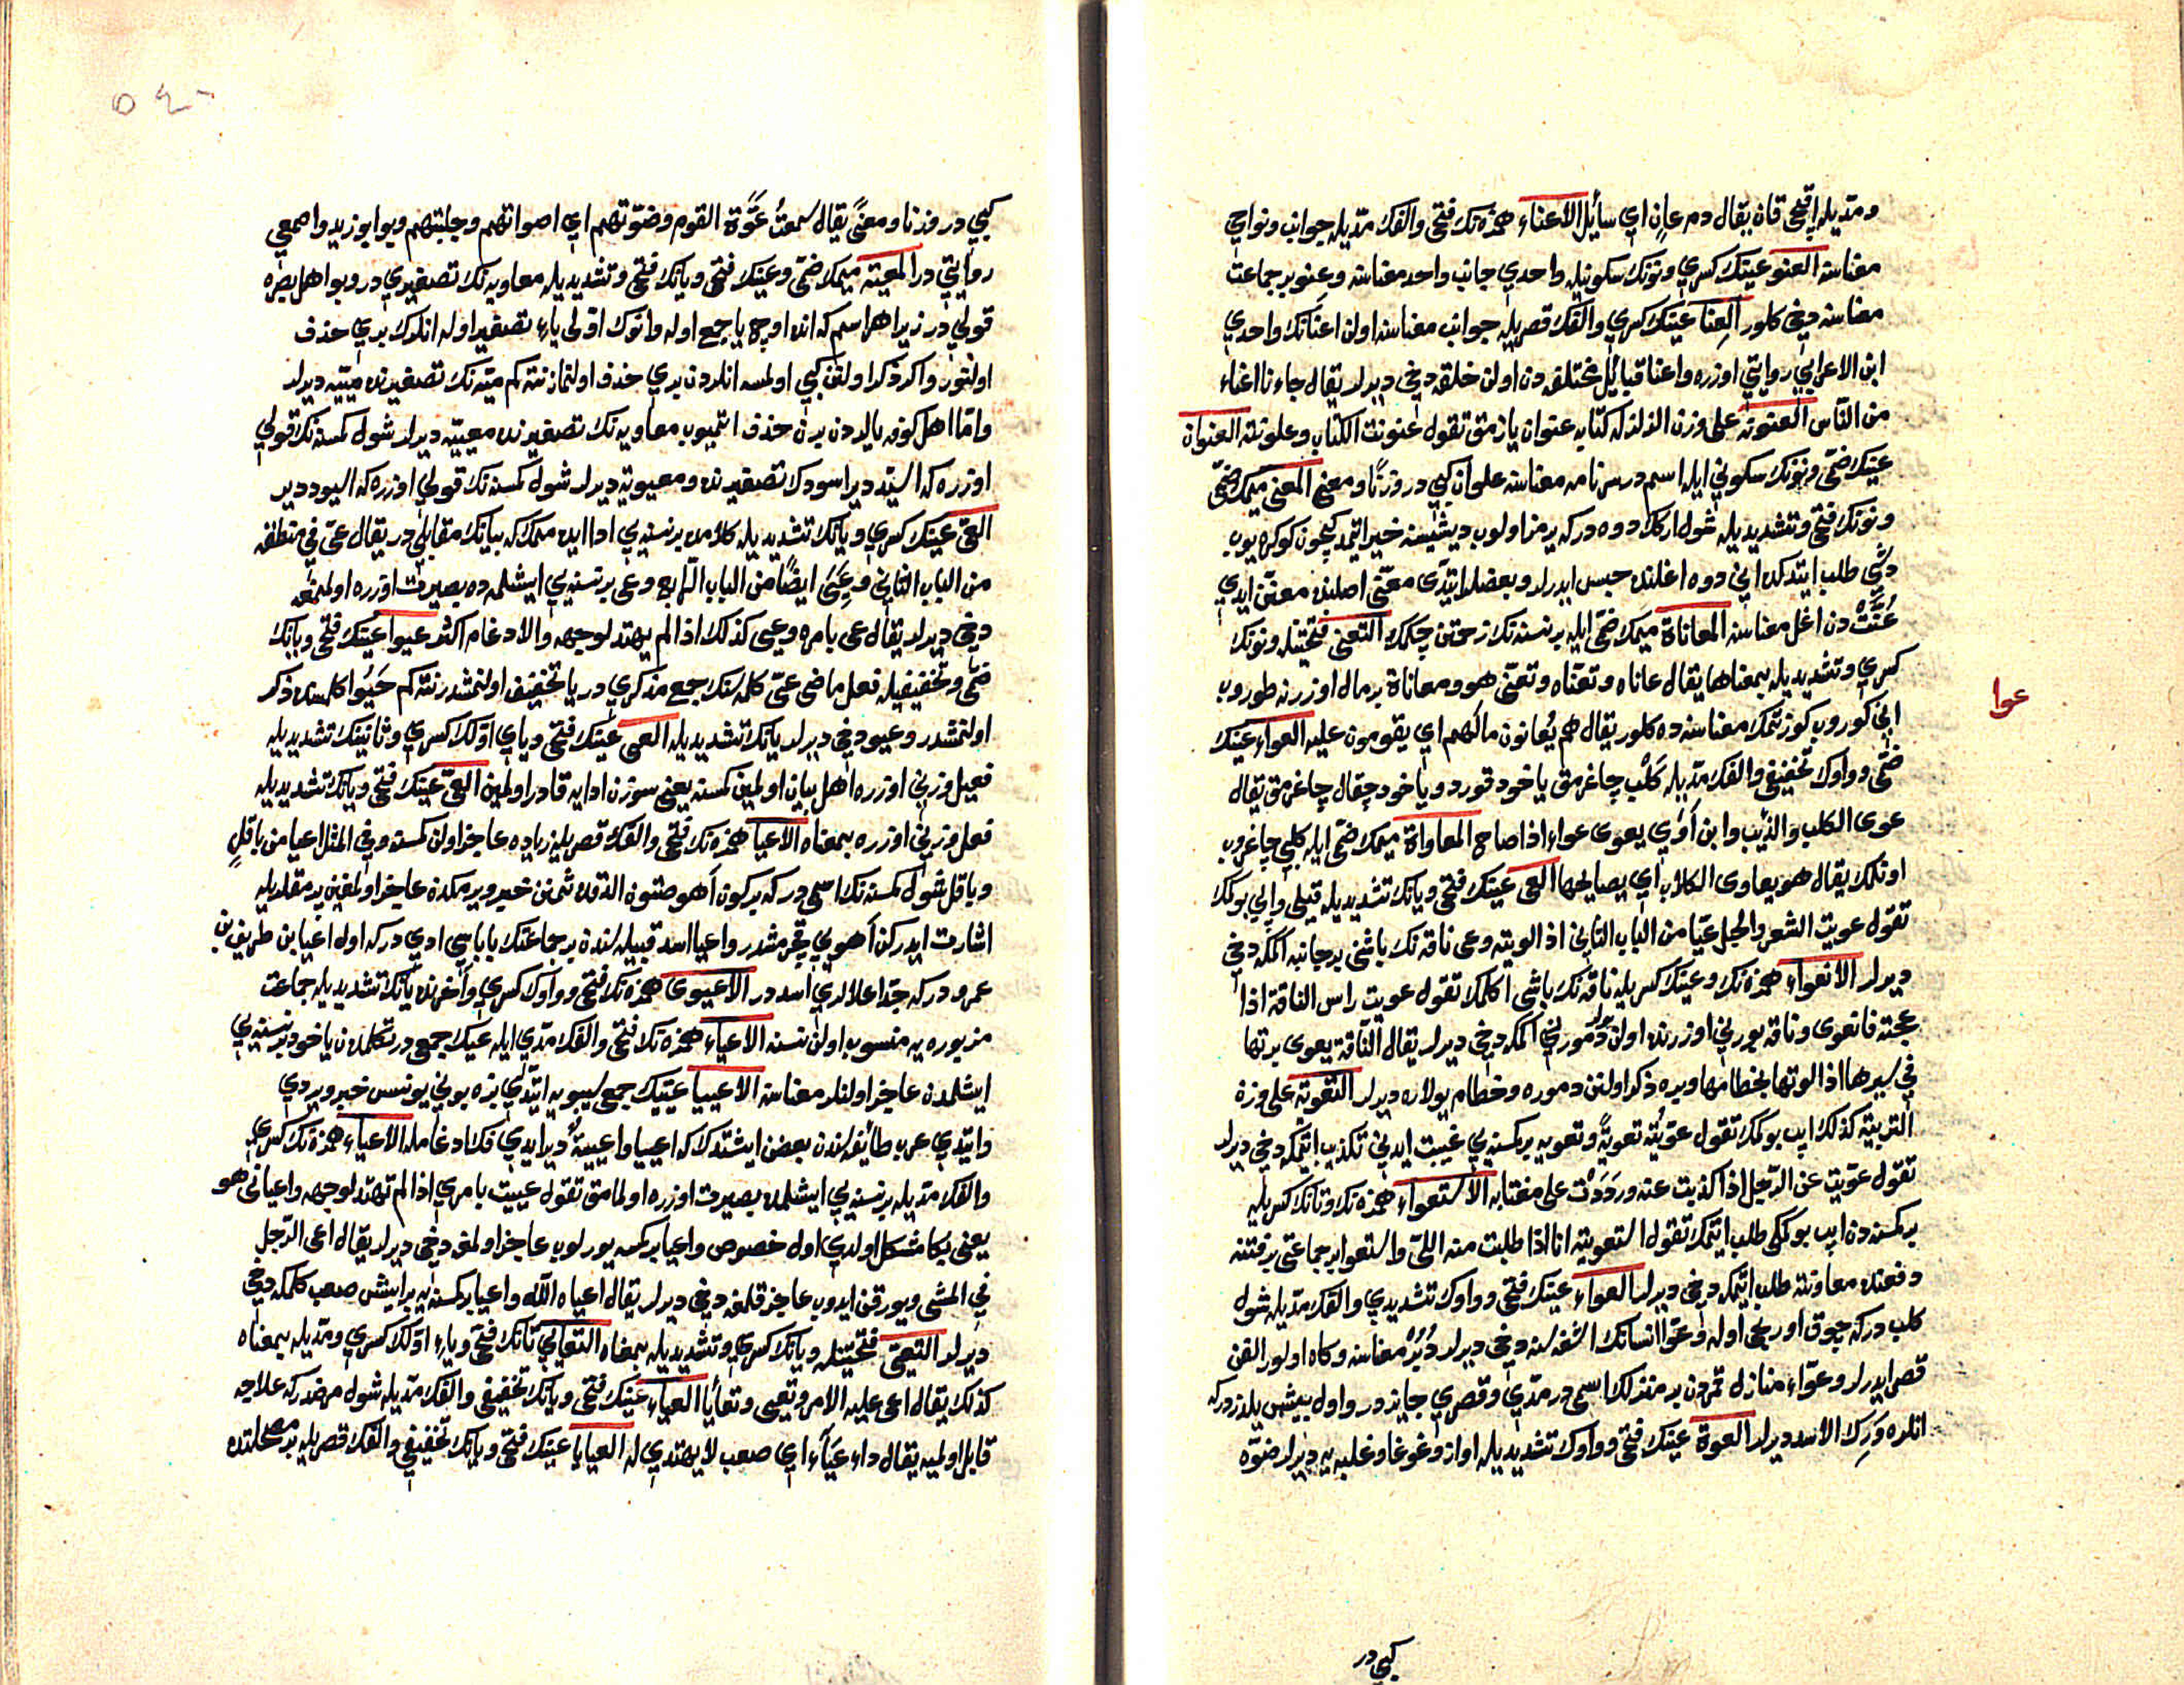 ومدّيله اقيجى قان يقال دم عانٍ اي سائل الاعناء همزه نك فتحى والفك مدّيله جوانب ونواحي
معناسنه العنو عينك كسرى ونونك سكونيله واحدى جانب واحد معناسنه وعنو بر جماعت
معناسنه دخى كلور العنا عينك كسرى والفك قصريله جوانب معناسنه اولن اعنانك واحدى
ابن الاعرابي روايتى اوزره واعنا قبائل مختلفه دن اولن خلقه دخى ديرلر يقال جاءنا اعناء
من الناس العنونه على وزن الزلزله كتابه عنوان يازمق تقول عنونت الكتاب وعلونته العنوان
عينك ضمّى ونونك سكونى ايله اسمدر سرنامه معناسنه علوان كبى در وزناً ومعنى المعنى ميمك ضمّى
ونونك فتحى وتشديديله شول ارکك دوه دركه يرمز اولوب ديشيسنه خير ايتمدكيچون كوكره يوب
ديشى طلب ايتدكده انى دوه اغلنده حبس ايدرلر وبعضلر ايتدى معنّى اصلنده معنّن ايدى
عُنَّتْ دن اغل معناسنه المعاناة ميمك ضمّى ايله بر نسنه نك زحمتن چكمك التعنى فتحتينله ونونك
كسرى وتشديديله بمعناها يقال عاناه وتعنّاه وتعنّى هو ومعاناة بر مال اوزرنه طوروب
انى كوروب كوزتمك معناسنه ده كلور يقال هم يُعانون مالَهم اي يقومون عليه العواء عينك
ضمّى وواوك تخفيفى والفك مدّيله كَلْب چاغرمق ياخود قورد وياخود چقال چاغرمق يقال
عوى الكلب والذئب وابن آوى يعوى عواء اذا صاح المعاواة ميمك ضمّى ايله كلبى چاغروب
اوتلك يقال هو يعاوى الكلاب اي يصايحها العى عينك فتحى ويانك تشديديله قيلى وايپى بوكمك
تقول عويت الشعر والحبل عيّا من الباب الثانى اذا لويته وعى ناقه نك باشنى بر جانبه اكمكه دخى
ديرلر الانعواء همزه نك وعينك كسريله ناقه نك باشى اكلمك تقول عويت راس الناقة اذا
عجته فانعوى وناقه بورنى اوزرنده اولن دمورنى اكمكه دخى ديرلر يقال الناقة يعوى برتها
فى سيرها اذا لوتها بخطامها وبره ذكر اولنن دموره وخطام يولاره ديرلر التعوية على وزن
التربية كذلك ايپ بوكمك تقول عوّيته تعويةً وتعويه بر كسنه يى غيبت ايدنى تكذيب ايتمكه دخى ديرلر
تقول عوّيت عن الرّجل اذا كذبت عنه ورَدَدْت على مغتابه الاستعواء همزه نك وتانك كسريله
بر كسنه دن ايپ بوكمكى طلب ايتمك تقول استعويته انا اذا طلبت منه اللىّ واستعوا بر جماعتى بر فتنه
دفعنده معاونته طلب ايتمكه دخى ديرلر العواء عينك فتحى وواوك تشديدى والفك مدّيله شول
كلب دركه چوق اوريجى اوله وعوّا انسانك اشغه سنه دخى ديرلر دُبُرْ معناسنه وكاه اولور الفن
قصر ايدرلر وعوّاء منازل قمردن بر منزلك اسمى در مدّى وقصرى جايزدر واول بيش يلدزدركه
انلره وَرِك الاسد ديرلر العوة عينك فتحى وواوك تشديديله اواز وغوغا وغلبه يه ديرلر ضوّه
كبى در
عوا
كبى در وزنا ومعنًى يقال سمعتُ عَوَّة القوم وضوّتهم اي اصواتهم وجلبتهم وبو ابو زيد واصمعى
روايتى در المعيّة ميمك ضمّى وعينك فتحى ويانك فتحى وتشديديله معاويه نك تصغيرى در وبو اهل بصره
قولى در زيرا هر اسم كه انده اوچ يا جمع اوله وانوك اوّلى ياء تصغير اوله انلرك برى حذف
اولنور واكر ذكر اولنن كبى اولمسه انلردن برى حذف اولنماز نته كم ميّه نك تصغيرنده مييّه ديرلر
وامّا اهل كوفه يالردن برن حذف ايتميوب معاويه نك تصغيرنده معييّه ديرلر شول كمسنه نك قولى
اوزره كه اسيّد دير اسودك تصغيرنده ومعيوية ديرلر شول كمسنه نك قولى اوزره كه اسيود دير
العىّ عينك كسرى ويانك تشديديله كلامده بر نسنه يى ادا ايده ممك كه بيانك مقابلى در يقال عىّ فى منطقه
من الباب الثانى وعَيِىَ ايضاً من الباب الرابع وعى بر نسنه يى ايشلمه ده بصيرت اوزره اولممغه
دخى ديرلر يقال عى بامره وعيى كذلك اذا لم يهتد لوجهه والادغام اكثر عيوا عينك فتحى ويانك
ضمّى وتخفيفيله فعل ماضى عىّ كلمه سنك جمع مذكرى در يا تخفيف اولنمشدر نته كم حَيُوا كلمسنده ذكر
اولنمشدر وعيو دخى ديرلر يانك تشديديله العيى عينك فتحى وياى اوّلك كسرى وثانينك تشديديله
فعيل وزنى اوزره اهل بيان اولمين كمسنه يعنى سوزن ادايه قادر اولمين العىّ عينك فتحى ويانك تشديديله
فعل وزنى اوزره بمعناه الاعيا همزه نك فتحى والفك قصريله زياده عاجز اولن كمسنه وفى المثل اعيا من باقلٍ
وباقل شول كمسنه نك اسمى دركه بر كون آهو صتون الدقده ثمنن خبر ويرمكده عاجز اولمغين
اشارت ايدركن آهويى قچرمشدر واعيا اسد قبيله سندن بر جماعتك باباسى ادى دركه اول اعيا بن طريف بن
عمرودركه جدّ اعلالرى اسددر الاعيوى همزه نك فتحى وواوك كسرى واخرنده يانك تشديديله جماعت
مزبوره يه منسوب اولن نسنه الاعياء همزه نك فتحى والفك مدّى ايله عيك جمعى در تكلمدن ياخود بر نسنه يى
ايشلمدن عاجز اولنلر معناسنه الاعييا عيىك جمعى سيبويه ايتدى بزه بونى يونس خبر ويردى
وايتدى عرب طائفه سندن بعضن ايشتدك كه اعييا واعييةٌ دير ايدى فك ادغامله الاعياء همزه نك كسرى
والفك مدّيله بر نسنه يى ايشلمده بصيرت اوزره اولمامق تقول عييت بامرى اذا لم تهتد لوجهه واعيانى هو
يعنى بكا مشكل اولدى اول خصوص واعيا بر كسه يورلوب عاجز اولمغه دخى ديرلر يقال اعى الرّجل
فى المشى ويورقن ايدوب عاجز قلمغه دخى ديرلر يقال اعياه الله واعيا بر كسنه يه بر ايش صعب كلمكه دخى
ديرلر التعيى فتحتينله ويانك كسرى وتشديديله بمعناه التعايى تانك فتحى وياء اوّلك كسرى ومدّيله بمعناه
كذلك يقال اعى عليه الامر وتعيى وتعايا العياء عينك فتحى ويانك تخفيفى والفك مدّيله شول مرضدركه علاجه
قابل اولميه يقال داء عَيَاء اي صعب لا يهتدى له العيايا عينك فتحى ويانك تخفيفى والفك قصريله بر مصلحتده